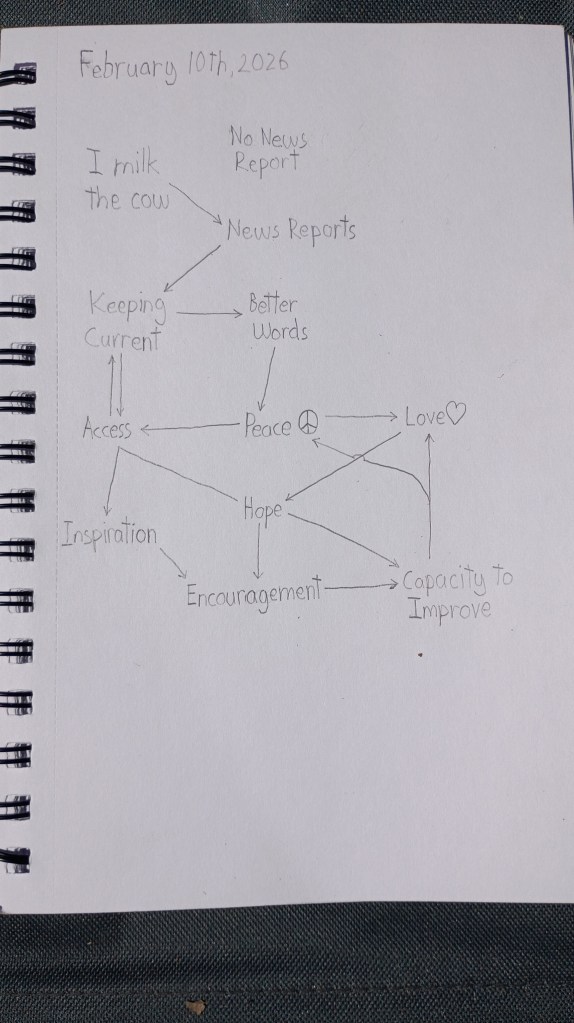 February 10th, 2026
No News
Report
I milk
the cow
News Reports
Keeping
Current
Better
Words
Access
Peace ☮
Love♡
Hope
Inspiration
Encouragement
Capacity to
Improve